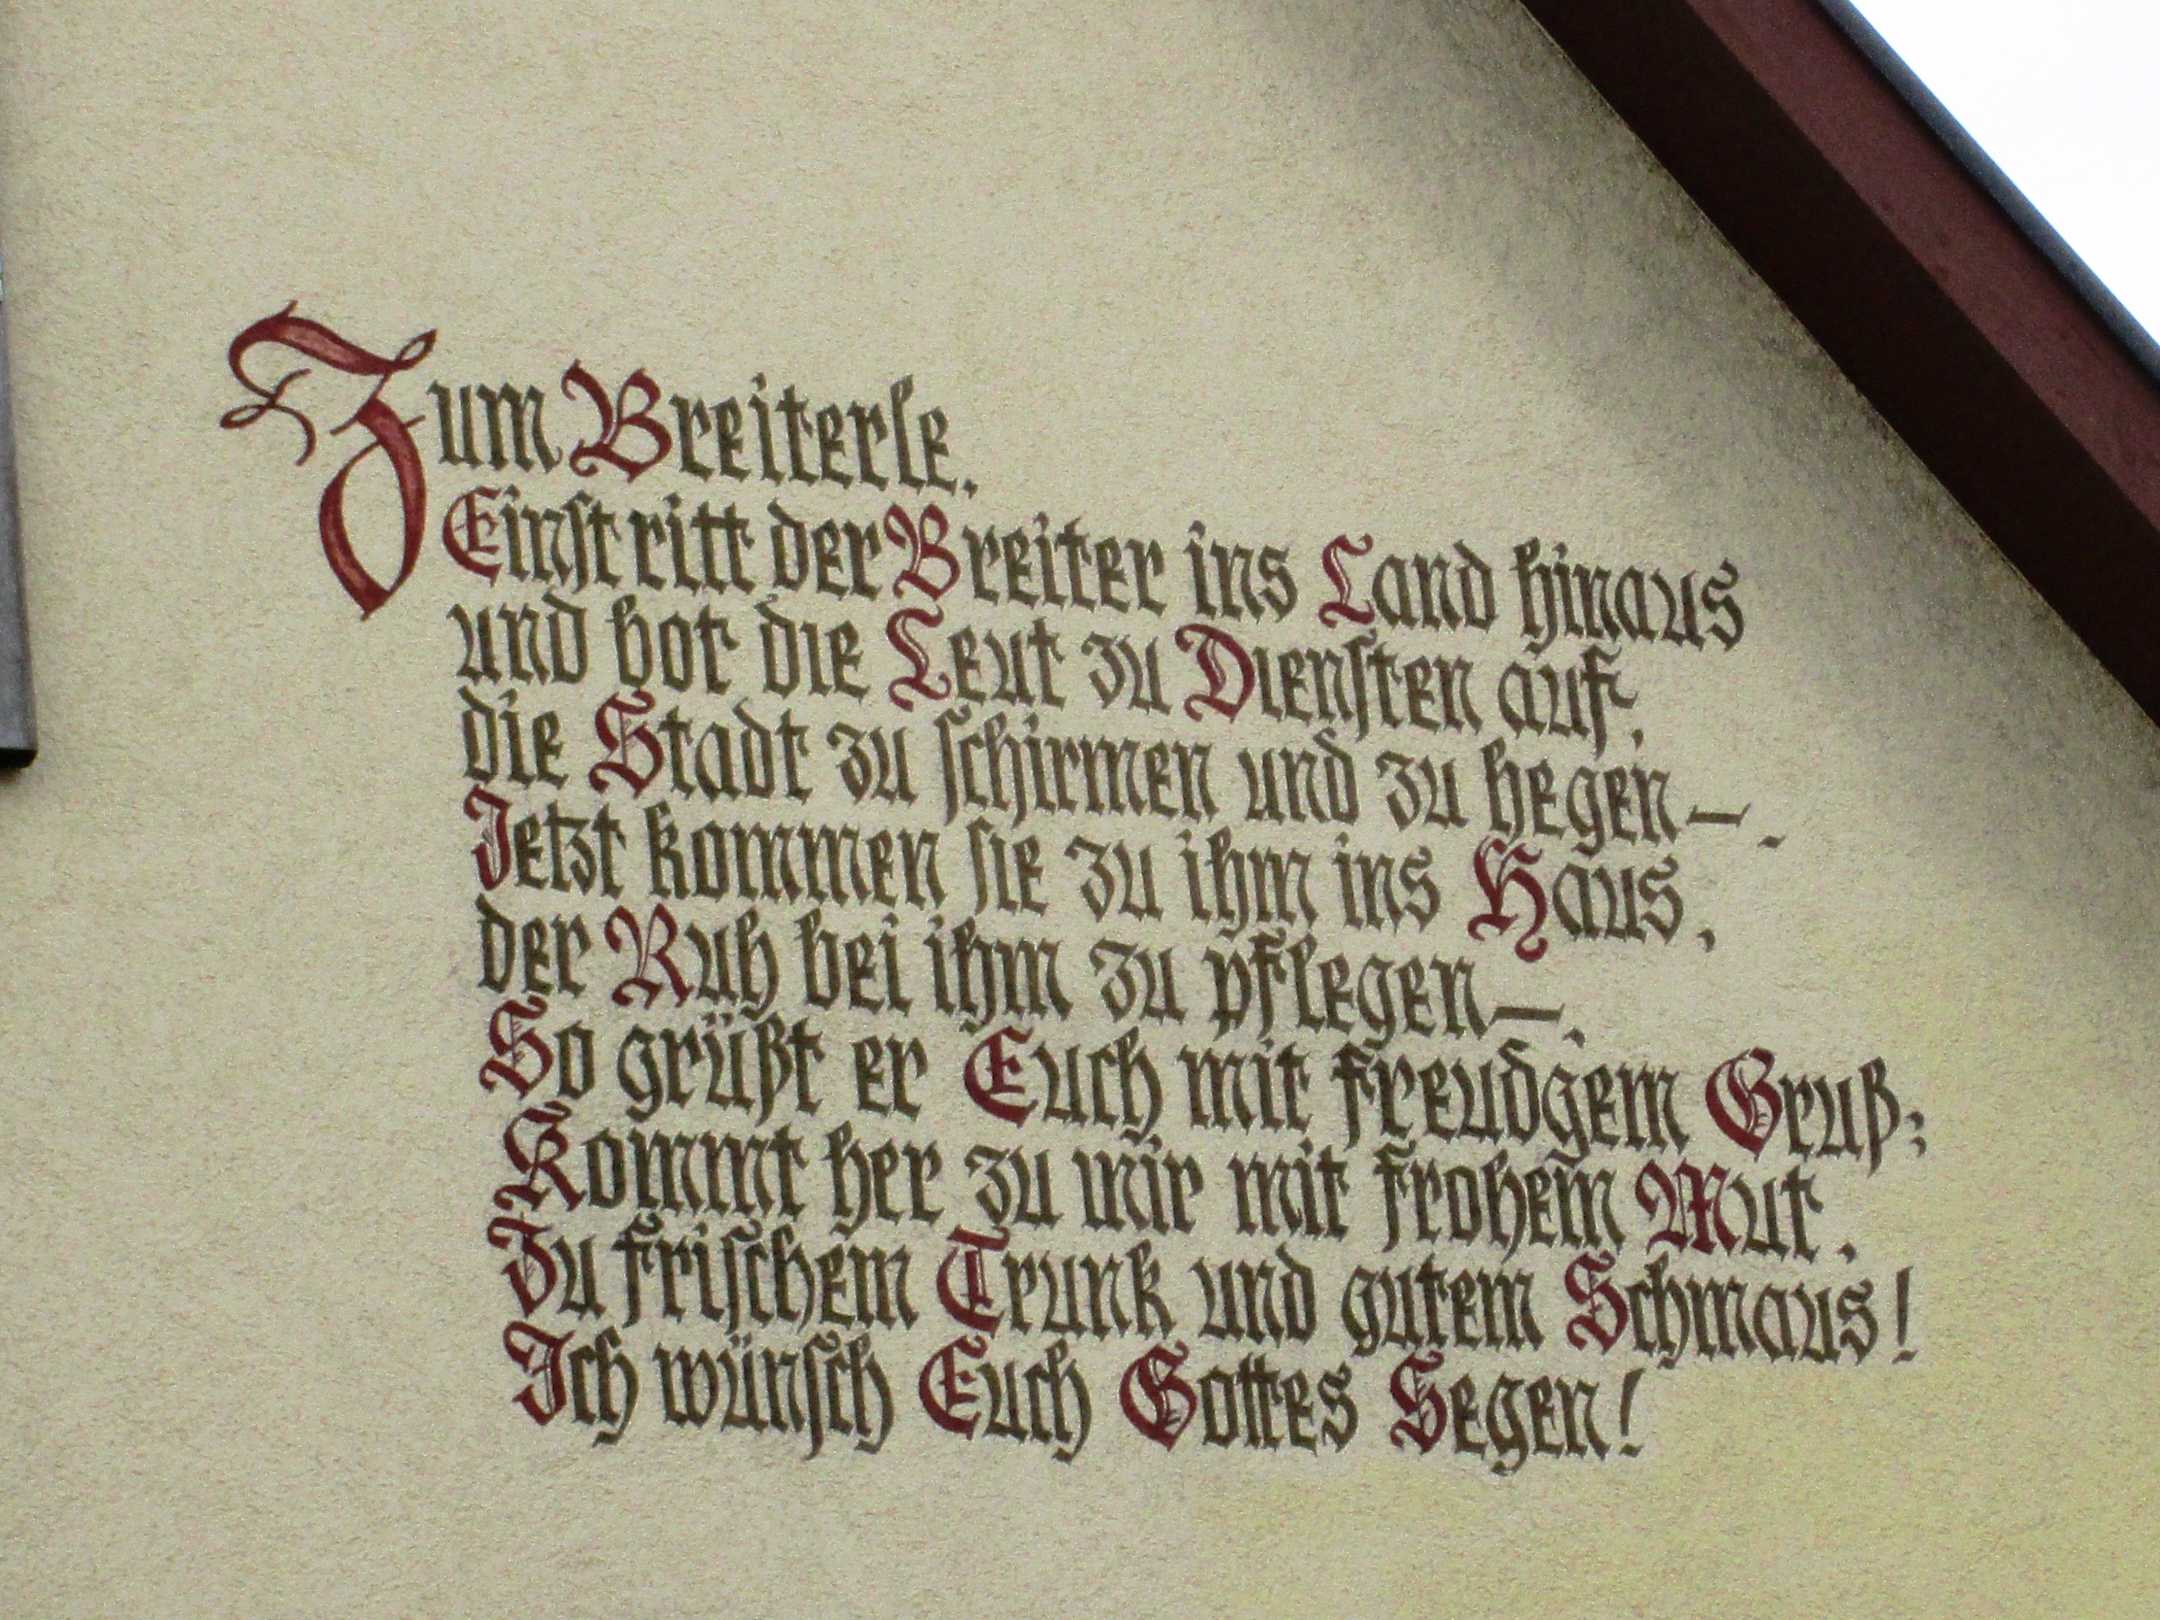 Zum Breiterle.
Einst ritt der Breiter ins Land hinaus
und bot die Leut zu Diensten auf,
die Stadt zu schirmen und zu hegen –.
Jetzt kommen sie zu ihm ins Haus,
der Ruh bei ihm zu pflegen –.
So grüßt er Euch mit freudgem Gruß;
Kommt her zu mir mit frohem Mut.
Zu frischem Trunk und gutem Schmaus!
Ich wünsch Euch Gottes Segen!